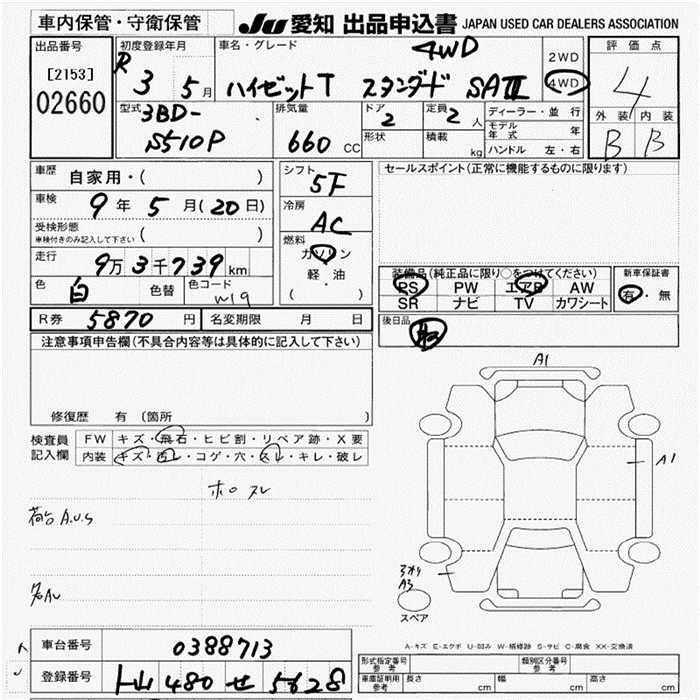 車内保管・守衛保管
JU 愛知 出品申込書 JAPAN USED CAR DEALERS ASSOCIATION
出品番号
[2153]
02660
初度登録年月
R 3 5月
車名・グレード
4WD
ハイゼットT スタンダード SAⅢ
2WD
4WD
評価点
4
外装 内装
B B
型式
3BD-
S510P
排気量
660 CC
ドア
2
定員
2 人
形状
積載
kg
ディーラー・並行
モデル年式 年
ハンドル 左・右
車歴
自家用・( )
車検
9年 5月(20日)
受検形態
車検付きのみ記入して下さい ( )
走行
9万3千739km
色
白
色替
色コード
W19
シフト
5F
冷房
AC
燃料
ガソリン
軽・油
( )
セールスポイント(正常に機能するものに限ります)
装備品(純正品に限り○をつけてください)
PS PW エアB AW
SR ナビ TV カワシート
新車保証書
有・無
後日品
R券 5870円
名変期限 月 日
注意事項申告欄(不具合内容等は具体的に記入して下さい)
修復歴 有(箇所
検査員
記入欄
FW キズ・飛石・ヒビ割・リペア跡・X要
内装 キズ・汚レ・コゲ・穴・スレ・キレ・破レ
ホロ スレ
荷台 A.U.S
A1
A1
アオリ
A3
スペア
A-キズ E-エクボ U-凹み W-補修跡 S-サビ C-腐食 XX-交換済
車台番号
0388713
登録番号
富山 480 せ 5628
形式指定番号
参考
類別区分番号
参考
車庫証明用
参考
長さ cm
幅 cm
高さ cm